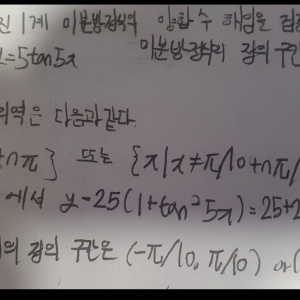 진 1계 미분방정식의 양함수 해임을 검증
=5tan5x 미분방정식의 정의 구간
의역은 다음과 같다.
+nπ} 또는 {x|x≠π/10+nπ/
에서 y-25(1+tan²5x)=25+2
의 정의 구간은 (-π/10, π/10) 이